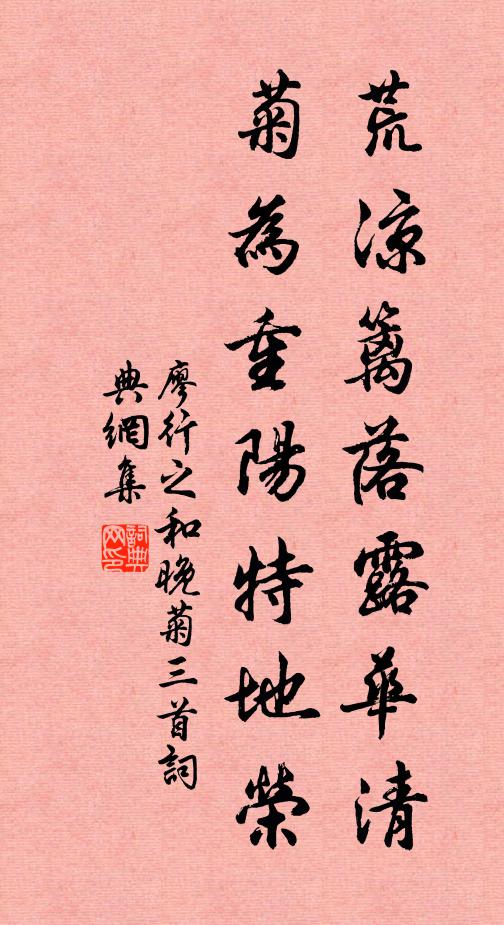 荒涼籬落露華清
菊為重陽特地榮
廖行之和晚菊三首詞
典網集
詞典網印